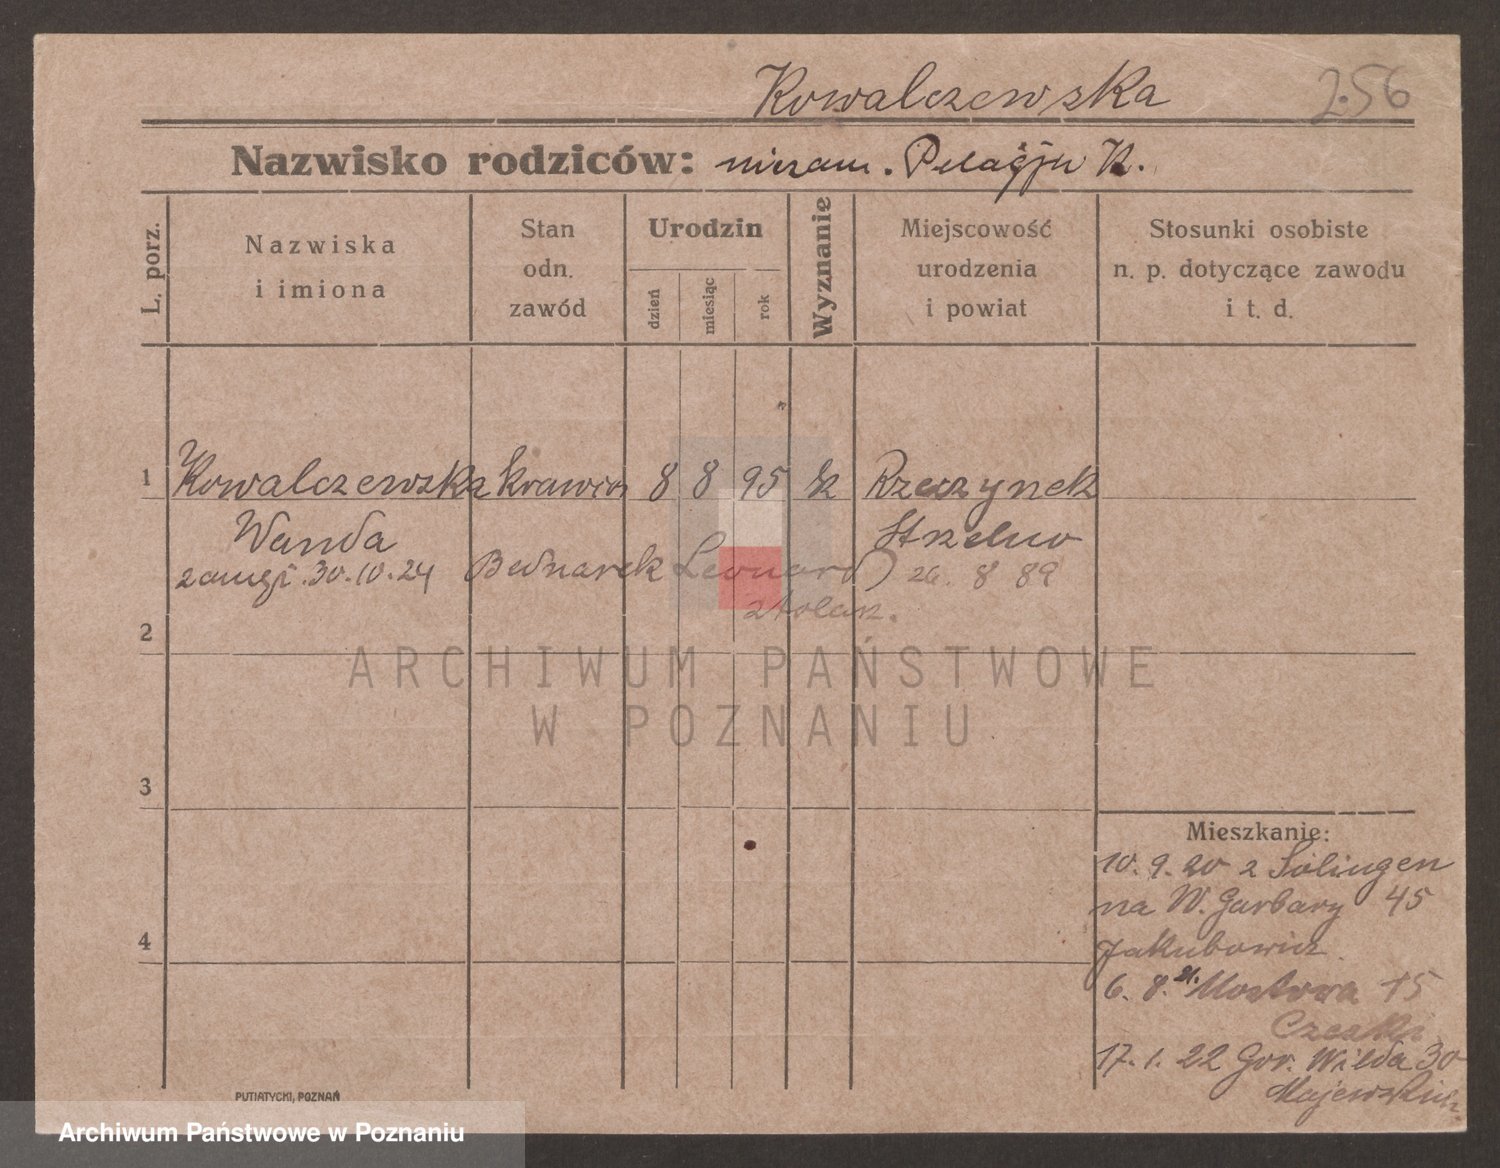 Kowalczewska 256
Nazwisko rodziców: niezam. Pelagja K.
L. porz.
Nazwiska
i imiona
Stan
odn.
zawód
Urodzin
dzień
miesiąc
rok
Wyznanie
Miejscowość
urodzenia
i powiat
Stosunki osobiste
n. p. dotyczące zawodu
i t. d.
1 Kowalczewska krawco 8 8 95 k Rzeszynek
Wanda Strzelno
30.10.24 Bednarek Leonard 26. 8 89
stolarz.
2
ARCHIWUM PAŃSTWOWE
W POZNANIU
3
4
Mieszkanie:
10. 9. 20 z Solingen
na W. Garbary 45
Jakubowicz
6. 8. 21. Mostowa 15
17. 1. 22 Gór. Wilda 30
PUTIATYCKI, POZNAŃ
Archiwum Państwowe w Poznaniu